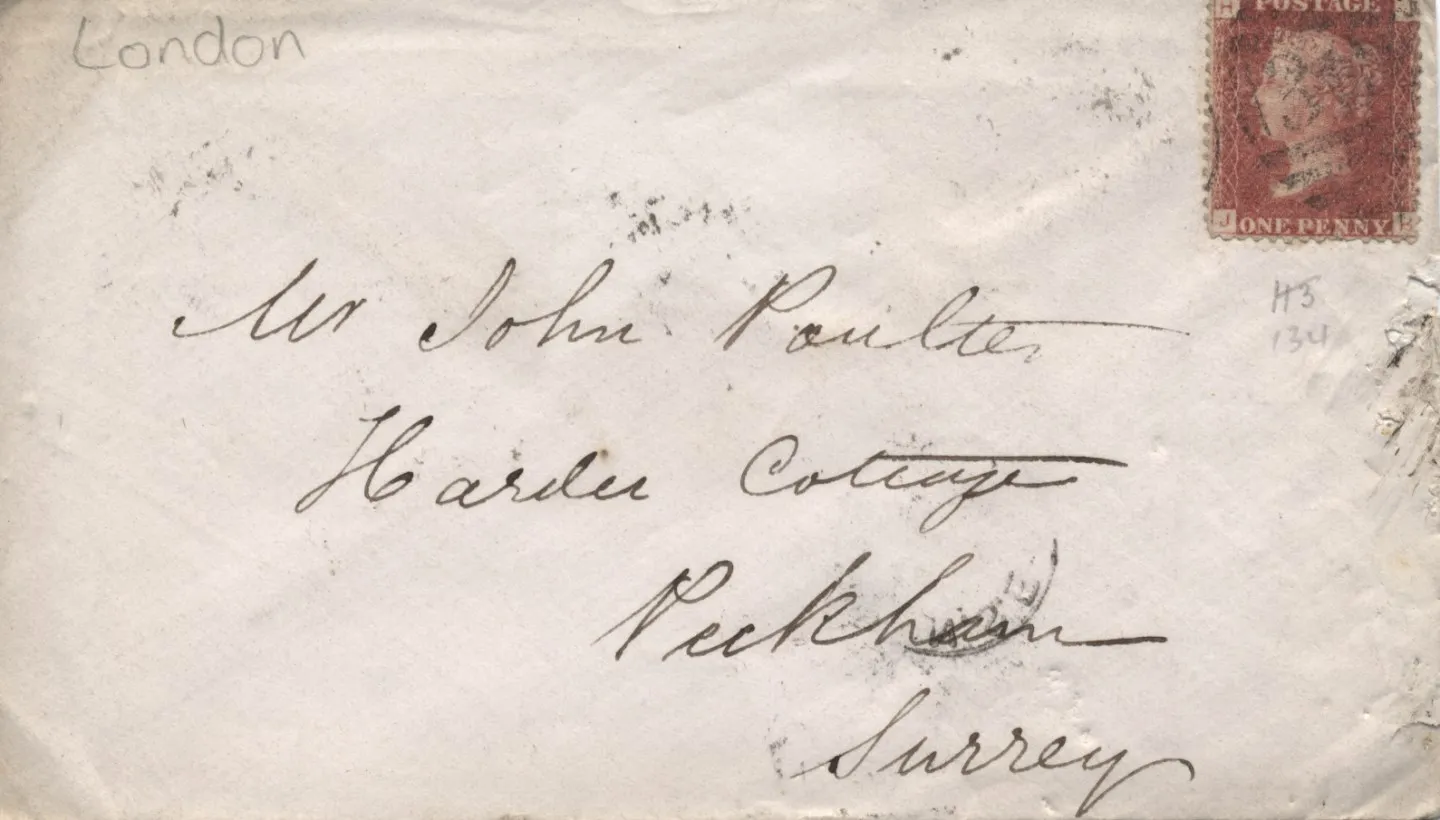 London
POSTAGE
H J
J ONE PENNY H
Mr John Poulter
H J
134
Harder Cottage
Peckham
Surrey